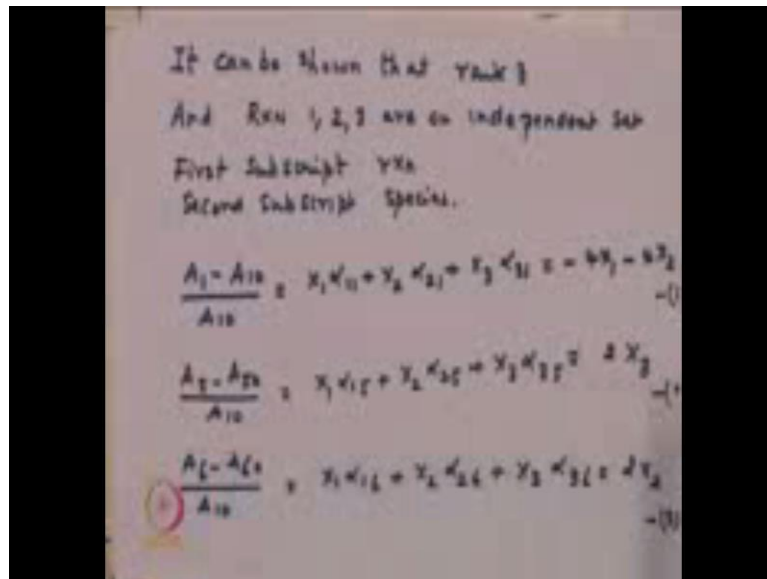 It can be shown that rank 3
And Rxn 1, 2, 3 are an independent set
First Subscript rxn
Second Subscript Species.
A₁ - A₁₀ / A₁₀ = x₁α₁₁ + x₂α₂₁ + x₃α₃₁ = - 4x₁ -
A₅ - A₅₀ / A₁₀ = x₁α₁₅ + x₂α₂₅ + x₃α₃₅ = 2x₃
A₆ - A₆₀ / A₁₀ = x₁α₁₆ + x₂α₂₆ + x₃α₃₆ = 2x₂
-(3)